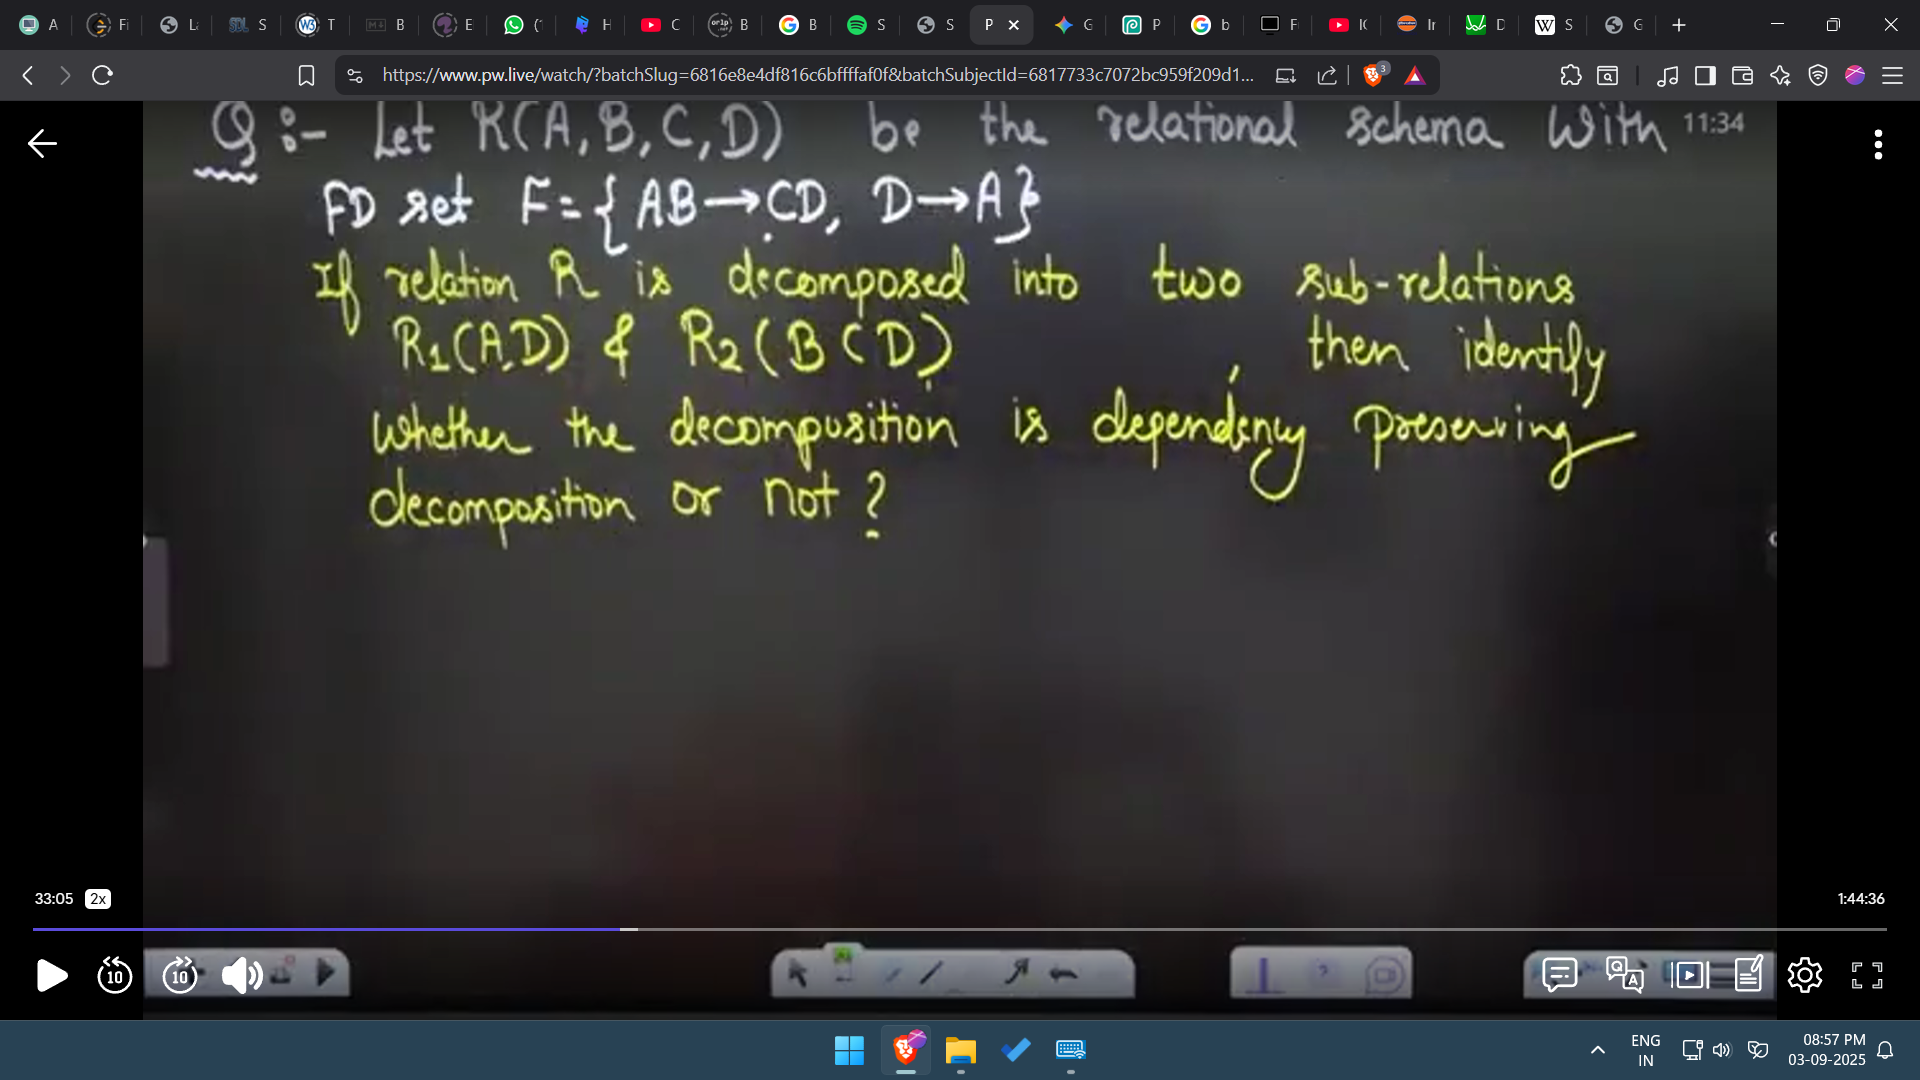 A
Fi
La
SQL S
W3 T
B
E
(1
H
C
B
B
S
S
P
G
P
b
Fi
IC
Ir
D
W S
G
https://www.pw.live/watch/?batchSlug=6816e8e4df816c6bffffaf0f&batchSubjectId=6817733c7072bc959f209d1...
3
Q :- Let R(A,B,C,D) be the relational schema With 11:34
FD set F = { AB→CD, D→A }
If relation R is decomposed into two sub-relations
R1(A,D) & R2(B C D) then identify
whether the decomposition is dependency preserving
decomposition or not ?
33:05 2x 1:44:36
10 10
ENG
IN
08:57 PM
03-09-2025